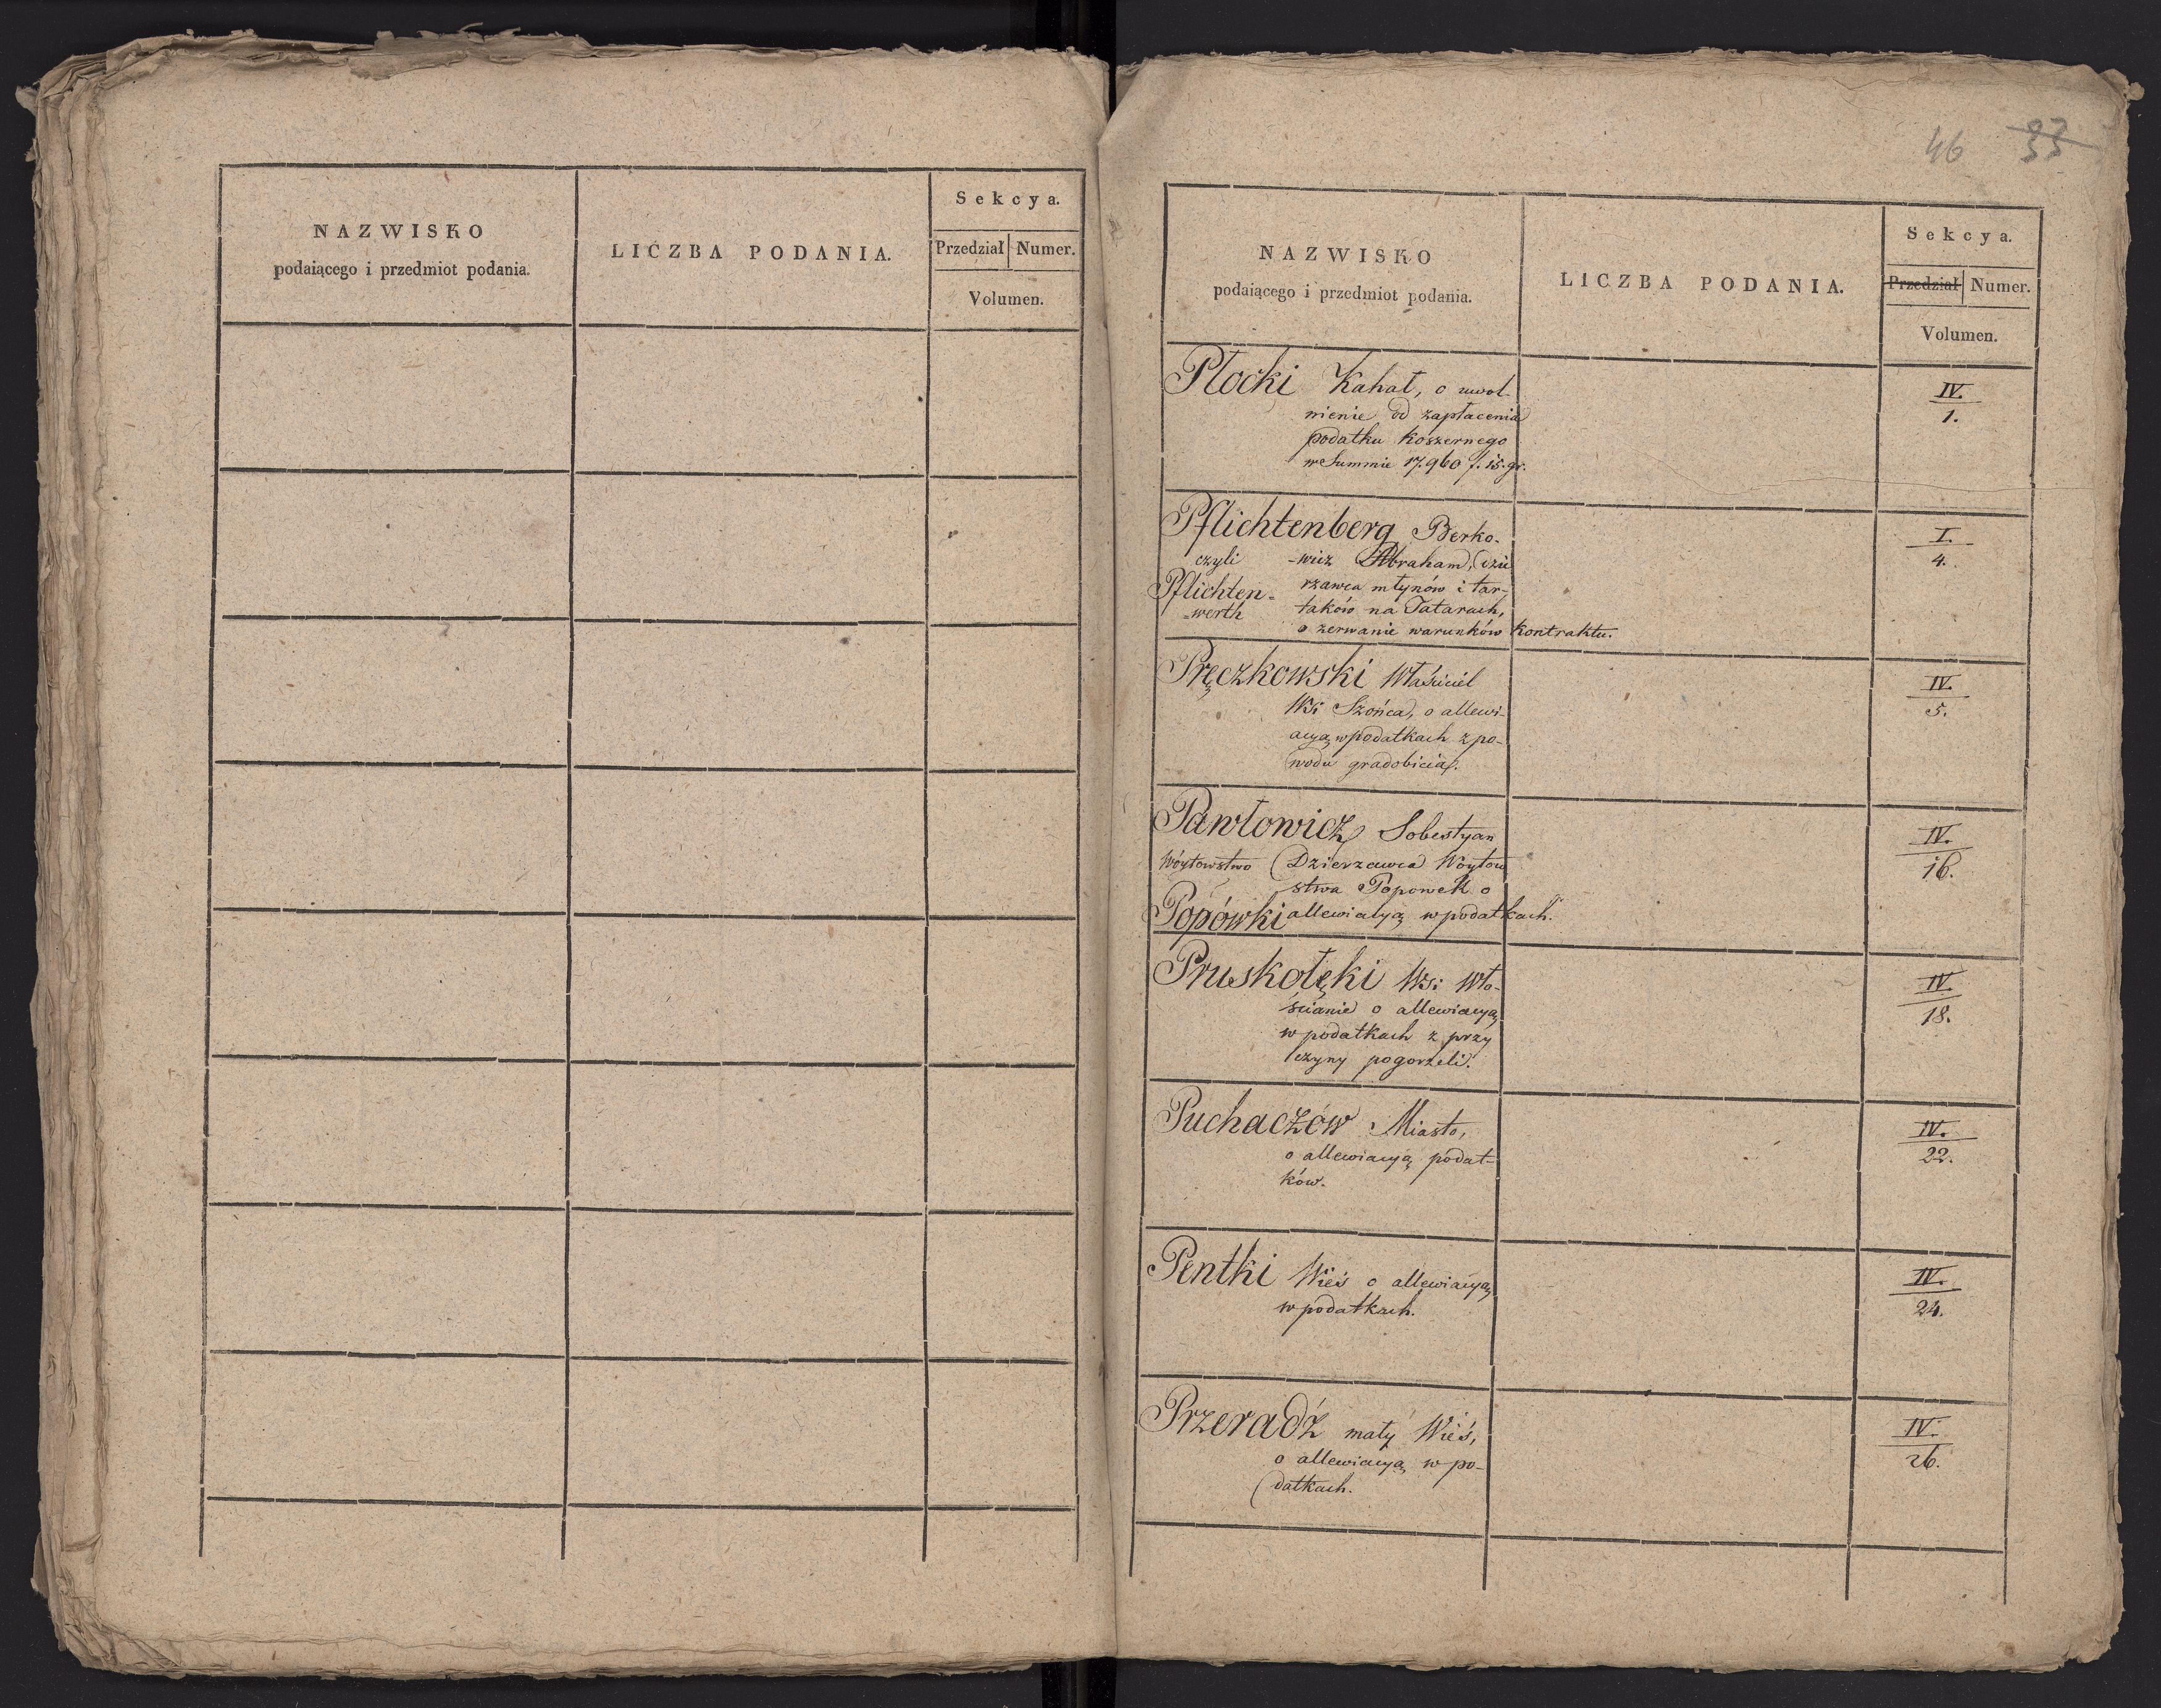 NAZWISKO
podaiącego i przedmiot podania.
LICZBA PODANIA.
Sekcya.
Przedział Numer.
Volumen.
46 33
NAZWISKO
podaiącego i przedmiot podania.
LICZBA PODANIA.
Sekcya.
Przedział Numer.
Volumen.
Płocki Kahał, o uwol-
nienie od zapłacenia
podatku koszernego
w Summie 17.960 f. 15. gr.
IV.
1.
Pflichtenberg Berko-
czyli -wicz Abraham, dzie
Pflichten= rzawca młynów i tar-
=werth taków na Tatarach,
o zerwanie warunków kontraktu.
I.
4.
Pręczkowski Właściciel
Wsi Szońca, o allewi-
acyą w podatkach z po-
wodu gradobicia.
IV.
5.
Pawłowicz Sobestyan
Wóytowstwo Dzierzawca Woytow
stwa Popowek o
Popówki allewiacyą w podatkach.
IV.
16.
Pruskołęki Wsi Wło-
ścianie o allewiacyą
w podatkach z przy
czyny pogorzeli.
IV.
18.
Puchaczów Miasto,
o allewiacyą podat-
ków.
IV.
22.
Pentki Wieś o allewiacyą
w podatkach.
IV.
24.
Przeradź mały Wieś,
o allewiacyą w po-
datkach.
IV.
26.